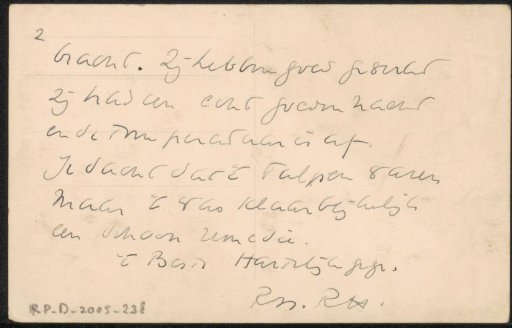 2
bracht. Zij hebben goed gewerkt
Zij had een echt goeden nacht
en de temperatuur is af.
Je dacht dat 't tulpen waren
maar 't was klaarblijkelijk
een schoon remedie.
't Beste Hartelijk gegr.
R.P-D-2005-238